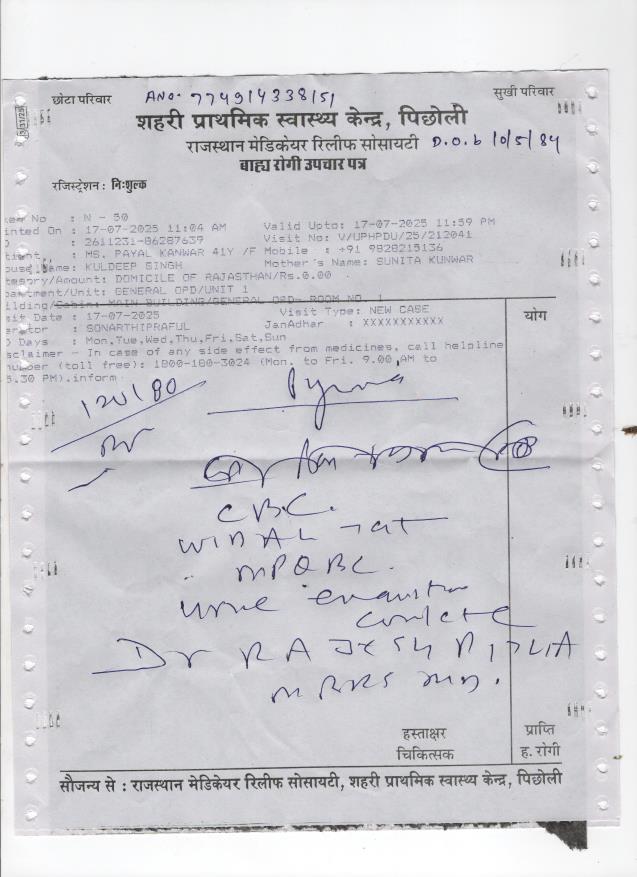 छोटा परिवार
ANO. 774914338151
सुखी परिवार
शहरी प्राथमिक स्वास्थ्य केन्द्र, पिछोली
राजस्थान मेडिकेयर रिलीफ सोसायटी D.O.b 10/5/84
बाह्य रोगी उपचार पत्र
रजिस्ट्रेशन : निःशुल्क
No : N - 50
inted On : 17-07-2025 11:04 AM Valid Upto: 17-07-2025 11:59 PM
: 2611231-86287639 Visit No: V/UPHPDU/25/212041
tient, : MS. PAYAL KANWAR 41Y /F Mobile : +91 9828215136
ouse Name: KULDEEP SINGH Mother's Name: SUNITA KUNWAR
tegory/Amount: DOMICILE OF RAJASTHAN/Rs.0.00
partment/Unit: GENERAL OPD/UNIT 1
ilding/Cabin: MAIN BUILDING/GENERAL OPD- ROOM NO. 1
sit Date : 17-07-2025 Visit Type: NEW CASE
erator : SONARTHIPRAFUL JanAadhar : XXXXXXXXXXX
D Days : Mon,Tue,Wed,Thu,Fri,Sat,Sun
sclaimer - In case of any side effect from medicines, call helpline
number (toll free): 1800-180-3024 (Mon. to Fri. 9.00 AM to
5.30 PM).inform
योग
120/80
CBC.
WIDAL
urine
complete
Dr RAJESH
MBBS MD.
हस्ताक्षर
चिकित्सक
प्राप्ति
ह. रोगी
सौजन्य से : राजस्थान मेडिकेयर रिलीफ सोसायटी, शहरी प्राथमिक स्वास्थ्य केन्द्र, पिछोली